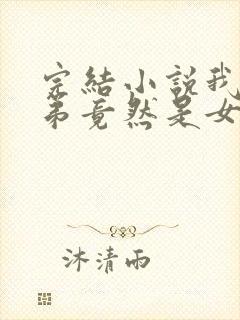 完結小説我
弟竟然是女
沐清雨